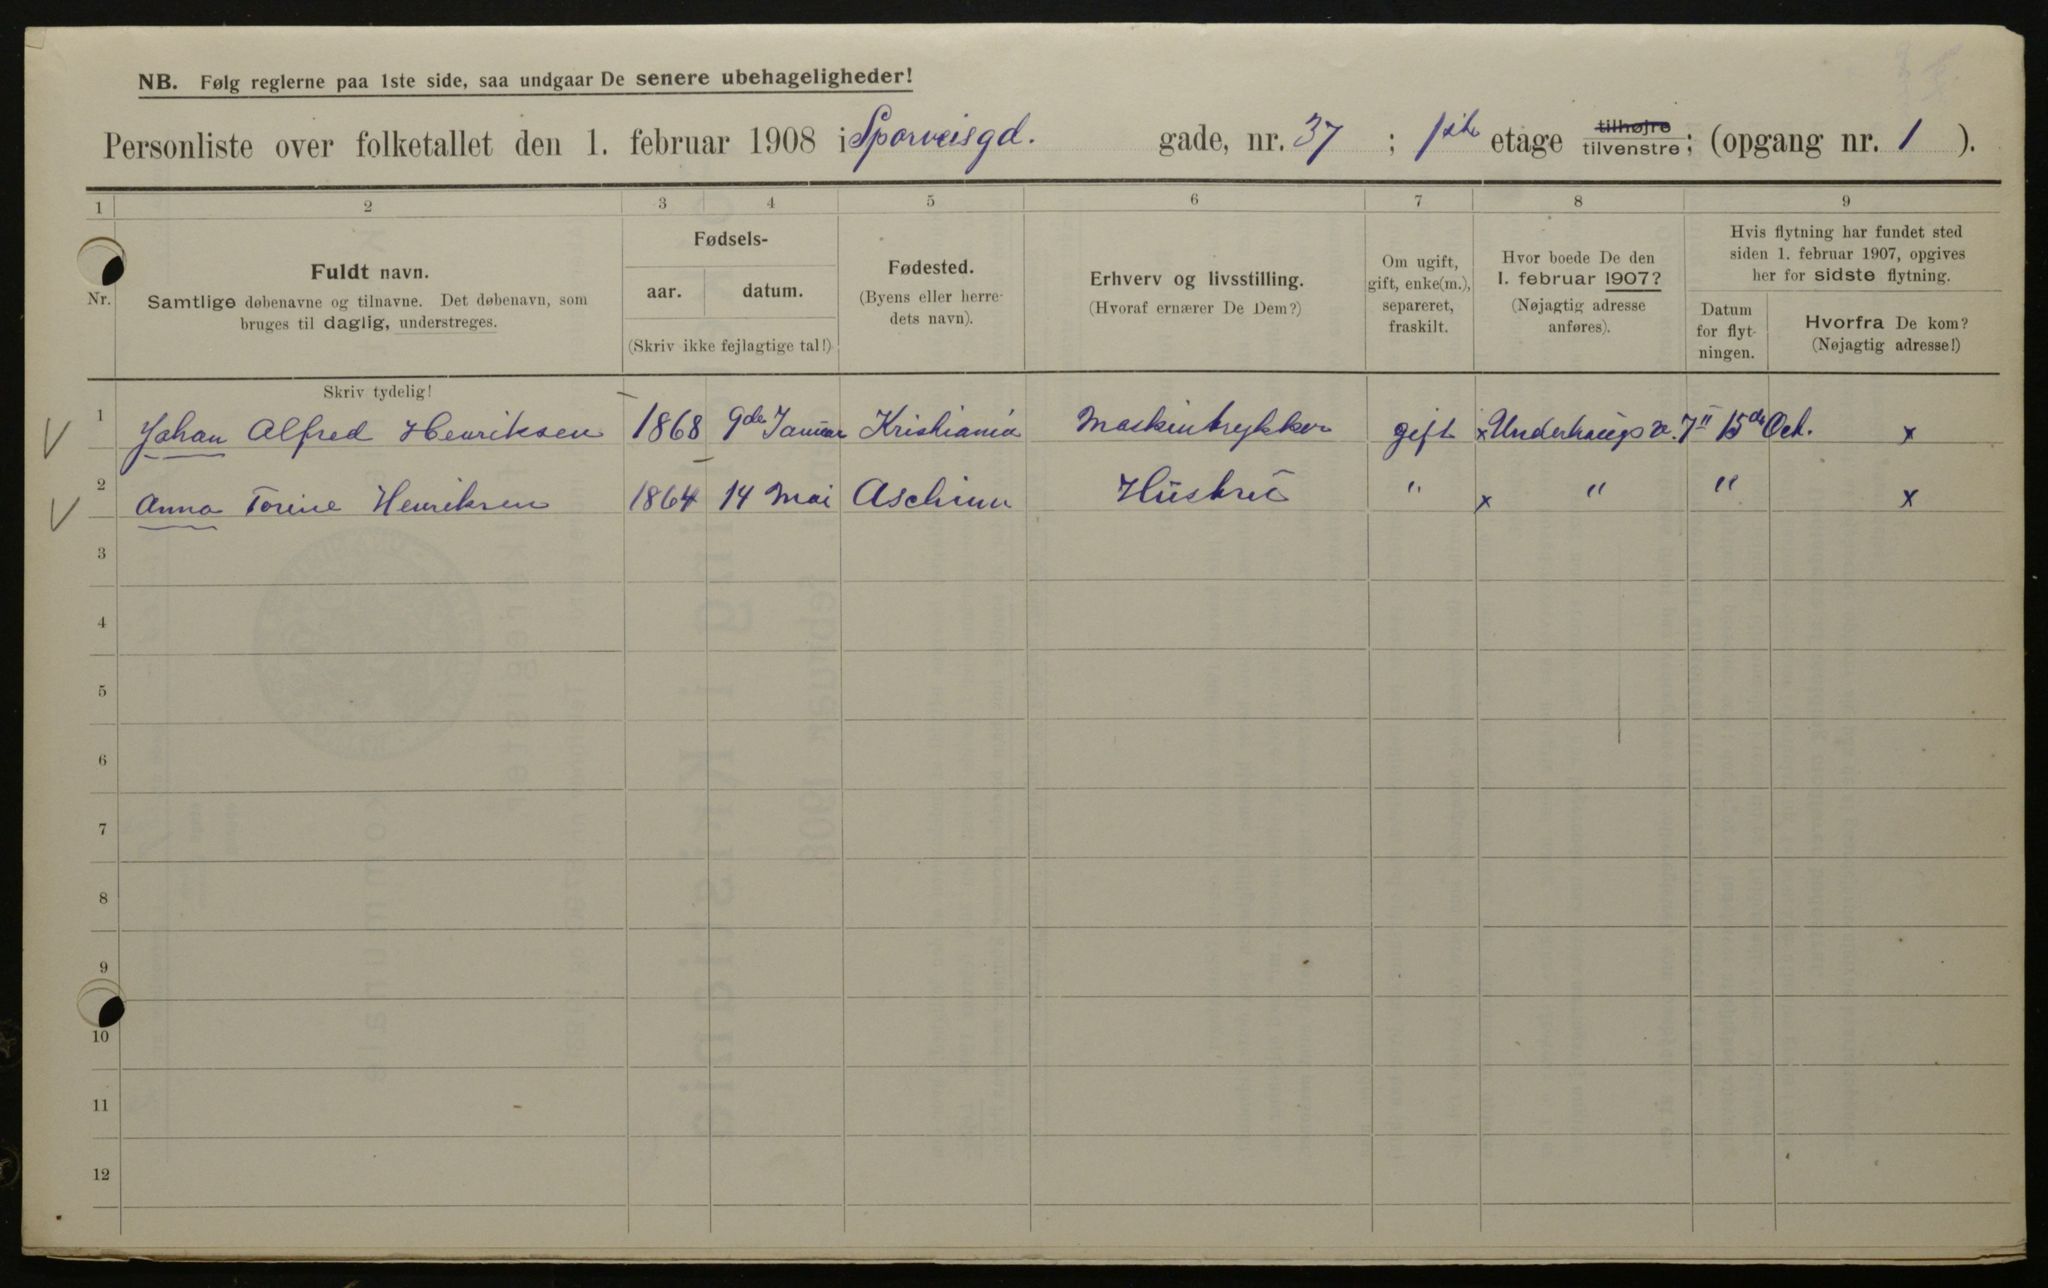 NB. Følg reglerne paa 1ste side, saa undgaar De senere ubehageligheder!
Personliste over folketallet den 1. februar 1908 i Sporveisgd. gade, nr. 37 ; 1ste etage tilhøjre tilvenstre; (opgang nr. 1 ).
1 2 3 4 5 6 7 8 9
Nr.
Fuldt navn.
Samtlige døbenavne og tilnavne. Det døbenavn, som
bruges til daglig, understreges.
Fødsels-
aar. datum.
(Skriv ikke fejlagtige tal!)
Fødested.
(Byens eller herre-
dets navn).
Erhverv og livsstilling.
(Hvoraf ernærer De Dem?)
Om ugift,
gift, enke(m.),
separeret,
fraskilt.
Hvor boede De den
1. februar 1907?
(Nøjagtig adresse
anføres).
Hvis flytning har fundet sted
siden 1. februar 1907, opgives
her for sidste flytning.
Datum
for flyt-
ningen.
Hvorfra De kom?
(Nøjagtig adresse!)
Skriv tydelig!
1 Johan Alfred Henriksen 1868 9de Januar Kristiania Maskintrykker gift x Underhaugs v. 7 II 15de Oct. x
2 Anna Torine Henriksen 1864 14 Mai Aschim Hüstrü " x " " x
3
4
5
6
7
8
9
10
11
12